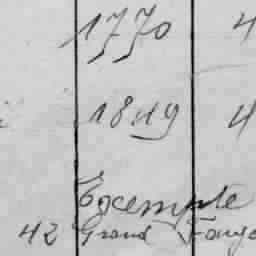 1770 4
1849 4
Exempte
42 Grand Fang